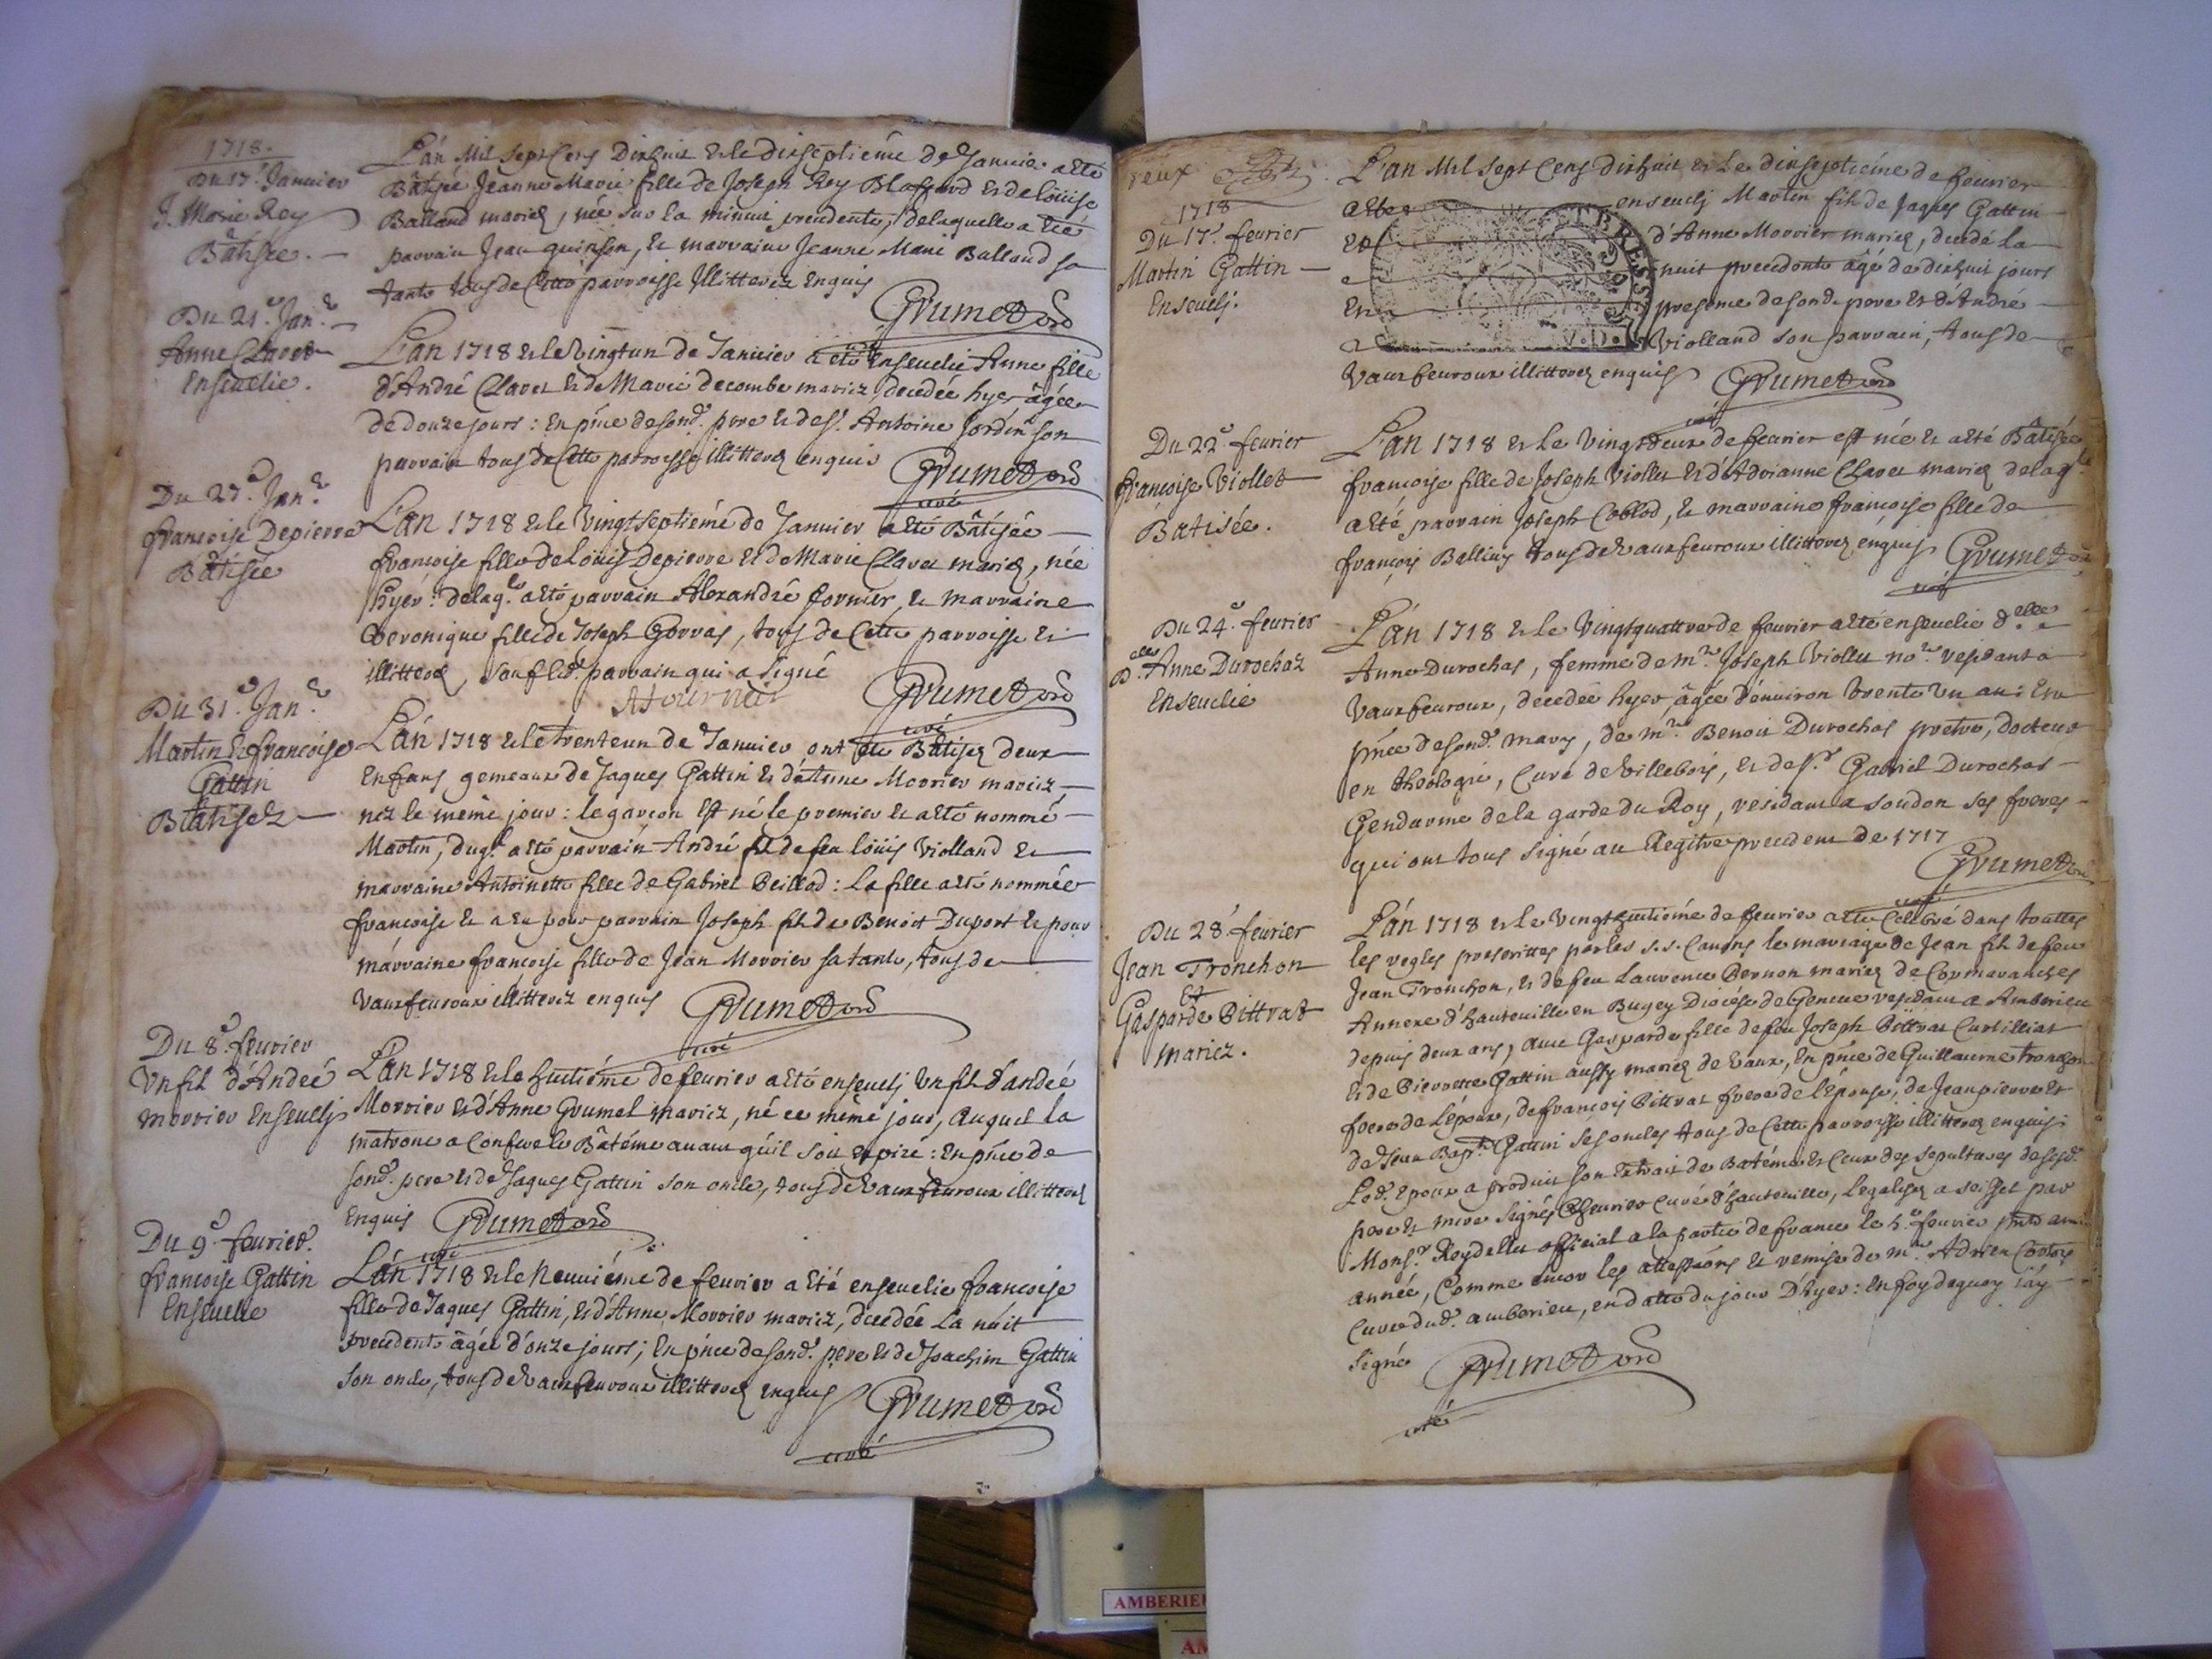 1718.
Du 17.e Januier
J. Marie Rey
Bâtisée.
L'án Mil sept Cens Dixhuit et le dixseptiéme de Januier a eté
Bâtisée Jeanne Marie fille de Joseph Rey Blaffard et de Loüise
Balland mariez, née sur la minuit precedente; de laquelle a eté
parrain Jean quinson, et marraine Jeanne Marie Balland sa
tante tous de Cette parroisse Illitterez Enquis
Grumet ord
Du 21.e Jan.r
Anne Clavet
Enseuelie.
L'an 1718 et le Vingtun de Januier a eté Enseuelie Anne fille
d'André Clavet et de Marie decombe mariez, decedée hyer âgée
de douze jours : En p̃nce de sond. pere et de s.r Antoine Jordin son
parrain tous de Cette parroisse illitterez enquis
Grumet ord
curé
Du 27.e Jan.r
françoise Depierre
Bâtisée
L'an 1718 et le Vingtseptiéme de Januier a eté Bâtisée
françoise fille de Loüis Depierre et de Marie Clavet mariez, née
hyér : de laq.le a eté parrain Alexandre fornier, et marraine
Veronique fille de Joseph Gorras, tous de Cette parroisse et
illitterez, sauf led. parrain qui a signé
Grumet ord
curé
Du 31.e Jan.r
Martin et françoise
Gattin
Bâtisez
L'án 1718 et le trenteun de Januier ont eté Bâtisez deux
Enfans gemeaux de Jaques Gattin et d'Anne Morrier mariez
nez le même jour : le garçon est né le premier et a eté nommé
Martin, duq.l a eté parrain André fil de feu Loüis Violland et
marraine Antoinette fille de Gabriel Beillod : La fille a eté nommée
françoise et a eu pour parrain Joseph fil de Benoit Duport et pour
marraine françoise fille de Jean Morrier sa tante, tous de
Vauxfeuroux illitterez enquis
Grumet ord
curé
Du 8.e feurier
Vn fil d'André
Morrier Enseuelj
L'an 1718 et le huitiéme de feurier a eté enseuelj Vn fil d'andré
Morrier et d'Anne Grumel mariez, né ce même jour, auquel la
matrone a Conferé le Bâtéme auant qu'il soit expiré : En p̃nce de
sond. pere et de Jaques Gattin son oncle, tous de Vauxfeuroux illitterez
Enquis
Grumet ord
curé
Du 9.e feurier.
françoise Gattin
Enseuelie
L'án 1718 et le Neuuiéme de feurier a eté enseuelie françoise
fille de Jaques Gattin, et d'Anne Morrier mariez, decedée La nuit
precedente âgée d'onze jours; En p̃nce de sond. pere et de Joachim Gattin
son oncle, tous de Vauxfeuroux illitterez enquis
Grumet ord
curé
1718
Du 17.e feurier
Martin Gattin
Enseuelj.
L'an Mil sept Cens dixhuit et Le dixseptiéme de feurier
a eté enseuelj Martin fil de Jaques Gattin
et d'Anne Morrier mariez, decedé la
nuit precedente âgé de dixhuit jours
En presence de sond. pere et d'André
Violland son parrain, tous de
Vauxfeuroux illitterez enquis
Grumet ord
curé
Du 22.e feurier
françoise Viollet
Batisée.
L'an 1718 et le Vingtdeux de feurier est née et a eté Bâtisée
françoise fille de Joseph Viollet et d'Adrianne Clavet mariez de laq.le
a eté parrain Joseph Coblod, et marraine françoise fille de
françois Bellius tous de Vauxfeuroux illitterez enquis
Grumet ord
curé
Du 24.e feurier
D.elle Anne Durochaz
Enseuelie
L'án 1718 et le Vingtquattre de feurier a eté enseuelie d.elle
Anne Durochas, femme de m.re Joseph Viollet no.re residant a
Vauxfeuroux, decedée hyer âgée d'enuiron trente Vn an : En
p̃nce de sond. mary, de m.re Benoit Durochas pretre, docteur
en theologie, Curé de Villebois, et de s.r Gabriel Durochas
Gendarme de la garde du Roy, residant a soudon ses freres
qui ont tous signé au Regitre precedent de 1717
Grumet ord
curé
Du 28.e feurier
Jean Tronchon
Et
Gasparde Bittrat
mariez.
L'án 1718 et le Vingthuitiéme de feurier a eté Celebré dans touttes
les regles prescrittes par les s.s. Canons le mariage de Jean fil de feu
Jean Tronchon, et de feu Laurence Bernon mariez de Cormaranches
Annexe d'hauteuille en Bugey Diocése de Geneue residant a Amberieu
depuis deux ans, auec Gasparde fille de feu Joseph Bittrat Curtilliat
et de Pierrette Gattin aussy mariez de Vaux, En p̃nce de Guillaume tronchon
frere de l'époux, de françois Bittrat frere de l'épouse, de Jeanpierre et
de Jean Bapt.e Gattin ses oncles tous de Cette parroisse illitterez enquis:
Led. Epoux a produit son Extrait de Batéme et Ceux des sepultures de sesd.
pere et mere signés Cheurier Curé d'hauteuille, Legalisez a seissel par
Mons.r Reydellet official a la partie de france le 5.e feurier p̃nte
année, Comme encor les attestations et remise de m.re Adrien Cortois
Curé dud. amberieu, en datte du jour D'hyer : En foy dequoy j'áy
signé
Grumet ord
curé
AMBERIE
AM